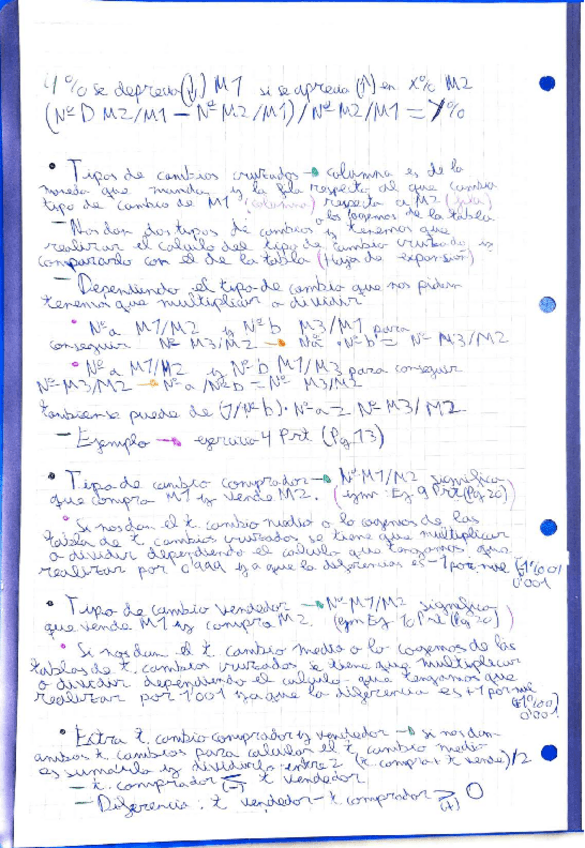 Y% se deprecia (↓) M1 si se aprecia (↑) en X% M2
(Nº D M2/M1 - Nº M2/M1) / Nº M2/M1 = Y%
• Tipos de cambios cruzados → columna es de la
moneda que manda y la fila respecto al que cambia
tipo de cambio de M1 (columna) respecto a M2 (fila)
o los cogemos de la tabla
- Nos dan dos tipos de cambios y tenemos que
realizar el calculo del tipo de cambio cruzado y
compararlo con el de la tabla (Hoja de expansión)
- Dependiendo el tipo de cambio que nos pidan
tenemos que multiplicar o dividir
• Nº a M1/M2 y Nº b M3/M1 para
conseguir Nº M3/M2 → Nº a · Nº b = Nº M3/M2
• Nº a M1/M2 y Nº b M1/M3 para conseguir
Nº M3/M2 → Nº a / Nº b = Nº M3/M2
tambien se puede de (1/Nº b) · Nº a = Nº M3/M2
- Ejemplo → ejercicio 4 Prt (Pg 13)
• Tipo de cambio comprador → Nº M1/M2 significa
que compra M1 y vende M2. (ejm: Ej 9 Prt (Pg 20))
• Si nos dan el t. cambio medio o lo cogemos de las
tabla de t. cambios cruzados se tiene que multiplicar
o dividir dependiendo el calculo que tengamos que
realizar por 0'999 ya que la diferencia es -1 por mil (-1%00)
0'001
• Tipo de cambio vendedor → Nº M1/M2 significa
que vende M1 y compra M2. (ejm Ej 10 Prt (Pg 20))
• Si nos dan el t. cambio medio o lo cogemos de las
tablas de t. cambios cruzados se tiene que multiplicar
o dividir dependiendo el calculo que tengamos que
realizar por 1'001 ya que la diferencia es +1 por mil
(+1%00)
0'001
• Extra t. cambio comprador y vendedor → si nos dan
ambos t. cambios para calcular el t. cambio medio
es sumarlo y dividirlo entre 2 (t. compra + t. vende)/2
- t. comprador ≤ t vendedor
(-)
- Diferencia: t vendedor - t. comprador ≥ 0
(+)